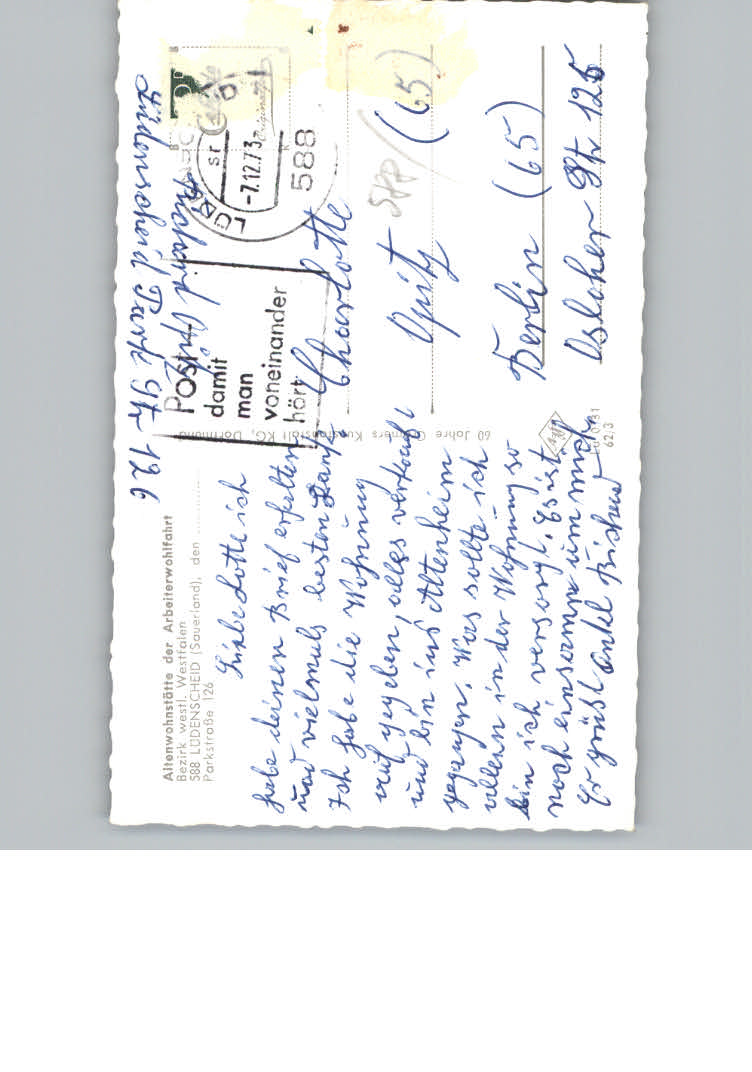 Altenwohnstätte der Arbeiterwohlfahrt
Bezirk westl. Westfalen
588 LÜDENSCHEID (Sauerland), den
Parkstraße 126
Liebe Lotte ich
habe deinen Brief erhalten
und vielmals besten Dank
Ich habe die Wohnung
auf gegeben, alles verkauft
und bin ins Altenheim
gegangen. Was sollte ich
allein in der Wohnung so
bin ich versorgt. Es ist
noch einsamer um mich
Er grüßt Onkel Richard
Lüdenscheid Park Str 126
Richard Opitz
Post -
damit
man
voneinander
hört
LÜDENSCHEID
-7.12.73-
588
Charlotte
Opitz (65)
588
Berlin (65)
Osloher Str 125
60 Jahre Cramers Kunstanstalt KG, Dortmund
Lü 0131
62/3